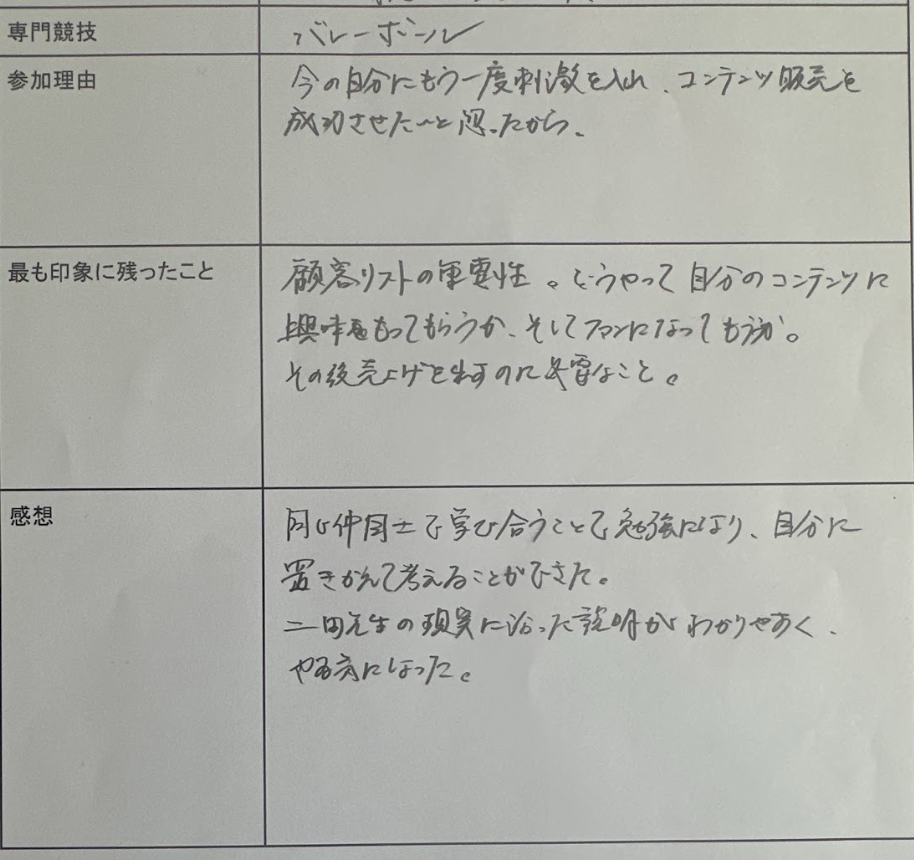 専門競技
バレーボール
参加理由
今の自分にもう一度刺激を入れ、コンテンツ販売を
成功させたいと思ったから、
最も印象に残ったこと
顧客リストの重要性。どうやって自分のコンテンツに
興味をもってもらうか、そしてファンになってもらうか。
その後売上げを出すのに必要なこと。
感想
同じ仲間同士で学び合うことで勉強になり、自分に
置きかえて考えることができた。
二田先生の現実に沿った説明がわかりやすく、
やる気になった。